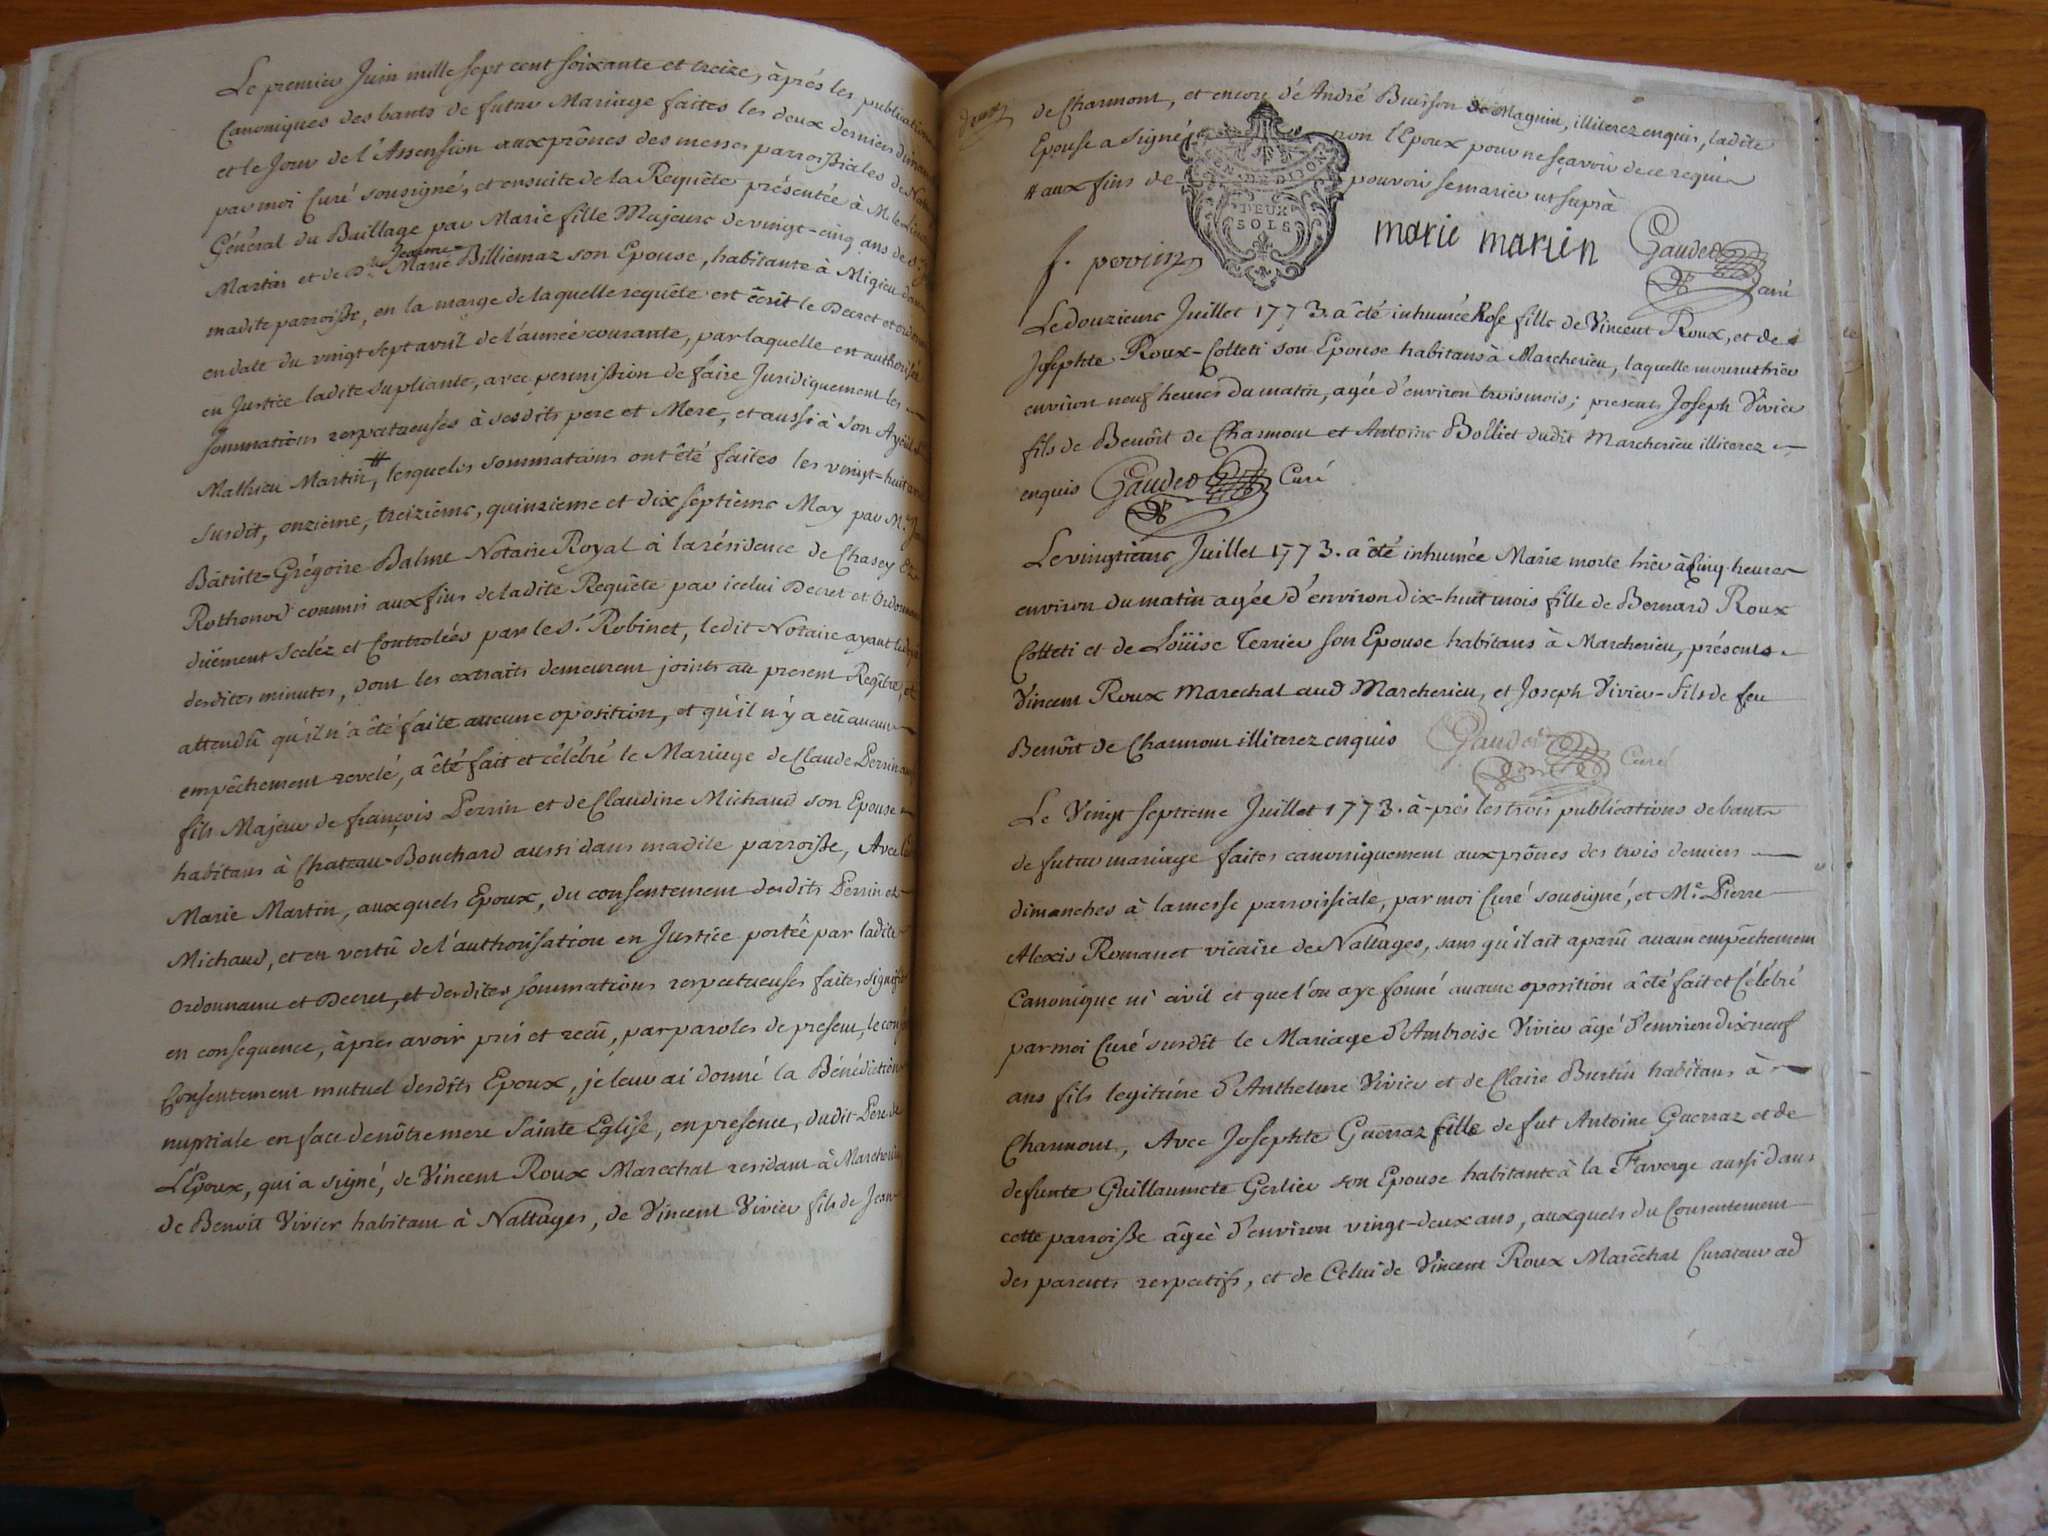 Le premier Juin mille sept cent soixante et treize, après les publications
Canoniques des bants de futur Mariage faites les deux derniers
et le Jour de l'Assension aux prônes des messes parroissiales de
par moi Curé sousigné, et ensuite de la Requête présentée à M. le
Général du Bailliage par Marie fille Majeure de vingt-cinq ans de
Jeanne
Martin et de D.lle Marie Billiemaz son Epouse, habitante à Migieu
madite parroisse, en la marge de laquelle requête est écrit le Decret et
en date du vingt sept avril de l'année courante, par laquelle en authorisée
en Justice ladite supliante, avec permission de faire Juridiquement les
sommations respectueuses à sesdits pere et Mere, et aussi à son Ayeul
Mathieu Martin #, lesquels sommations ont été faites les vingt-huit
susdit, onzieme, treizieme, quinzieme et dix septieme May par M.
Bâtiste-Grégoire Balme Notaire Royal à la résidence de Chasey
Rothonod commis aux fins de ladite Requête par icelui Decret et
düement scélez et Controlées par le S.r Robinet, ledit Notaire ayant
desdites minutes, dont les extraits demeurent joints au present Regître, et
attendû qu'il n'a été faite aucune oposition, et qu'il n'y a eû aucun
empêchement revelé, a été fait et célébré le Mariage de Claude Perrin
fils Majeur de françois Perrin et de Claudine Michaud son Epouse
habitans à Chateau-Bouchard aussi dans madite parroisse, Avec
Marie Martin, auxquels Epoux, du consentement desdits Perrin et
Michaud, et en vertû de l'authorisation en Justice portée par ladite
ordonnance et Decret, et desdites sommations respectueuses faites
en consequence, àpres avoir pris et recû, par paroles de present, le
Consentement mutuel desdits Epoux, je leur ai donné la Bénédiction
nuptiale en face de nôtre mere Sainte Eglise, en presence, dudit Pere de
L'Epoux, qui a signé, de Vincent Roux Marechal residant à
de Benoit Vivier habitant à Nattages, de Vincent Vivier fils de Jean
de Charmont, et encore de André Buisson de Magnin, illiterez enquis, ladite
Epouse a signé non l'Epoux pour ne sçavoir de ce requis
# aux fins de pouvoir se marier ut suprà
DIJON
DEUX
SOLS
f. perrin marie martin Gaudet
Curé
Le douzieme Juillet 1773. a été inhumée Rose fille de Vincent Roux, et de
Josephte Roux-Colleti son Epouse habitans à Marcherieu, laquelle mourut hier
environ neuf heures du matin, agée d'environ trois mois; presents Joseph Vivier
fils de Benôit de Charmont et Antoine Bolliet dudit Marcherieu illiterez
enquis Gaudet Curé
Le vingtieme Juillet 1773. a été inhumée Marie morte hier à Cinq heures
environ du matin agée d'environ dix-huit mois fille de Bernard Roux
Colleti et de Loüise Terrier son Epouse habitans à Marcherieu, présents
Vincent Roux Marechal aud Marcherieu, et Joseph Vivier fils de feu
Benôit de Charmont illiterez enquis Gaudet Curé
Le Vingt septieme Juillet 1773. à-près les trois publications de bants
de futur mariage faites canoniquement aux prônes des trois derniers
dimanches à la messe parroissiale, par moi Curé sousigné, et M.e Pierre
Alexis Romanet vicaire de Nattages, sans qu'il ait aparû aucun empêchement
Canonique ni civil et que l'on aye formé aucune oposition a été fait et Célébré
par moi Curé susdit le Mariage d'Ambroise Vivier âgé d'environ dix neuf
ans fils legitime d'Anthelme Vivier et de Claire Burtin habitans à
Charmont, Avec Josephte Guerraz fille de fut Antoine Guerraz et de
defunte Guillaumete Gerlier son Epouse habitante à la Faverge aussi dans
cette parroisse âgée d'environ vingt-deux ans, auxquels du Consentement
des parents respectifs, et de Celui de Vincent Roux Maréchal Curateur ad